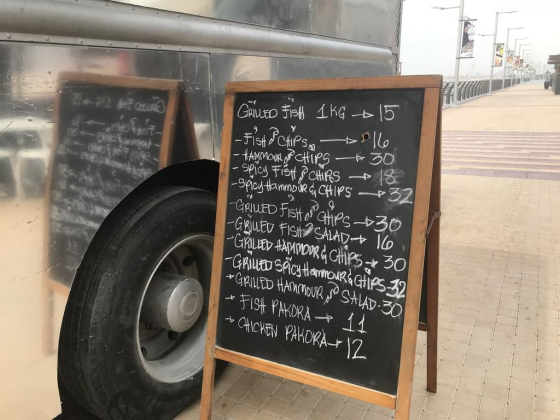 GRILLED FISH 1KG → 15
- FISH & CHIPS → 16
- HAMMOUR & CHIPS → 30
- SPICY FISH & CHIPS → 18
- SPICY HAMMOUR & CHIPS → 32
- GRILLED FISH & CHIPS → 30
- GRILLED FISH & SALAD → 16
- GRILLED HAMMOUR & CHIPS → 30
- GRILLED SPICY HAMMOUR & CHIPS - 32
→ GRILLED HAMMOUR & SALAD - 30
→ FISH PAKORA → 11
→ CHICKEN PAKORA → 12